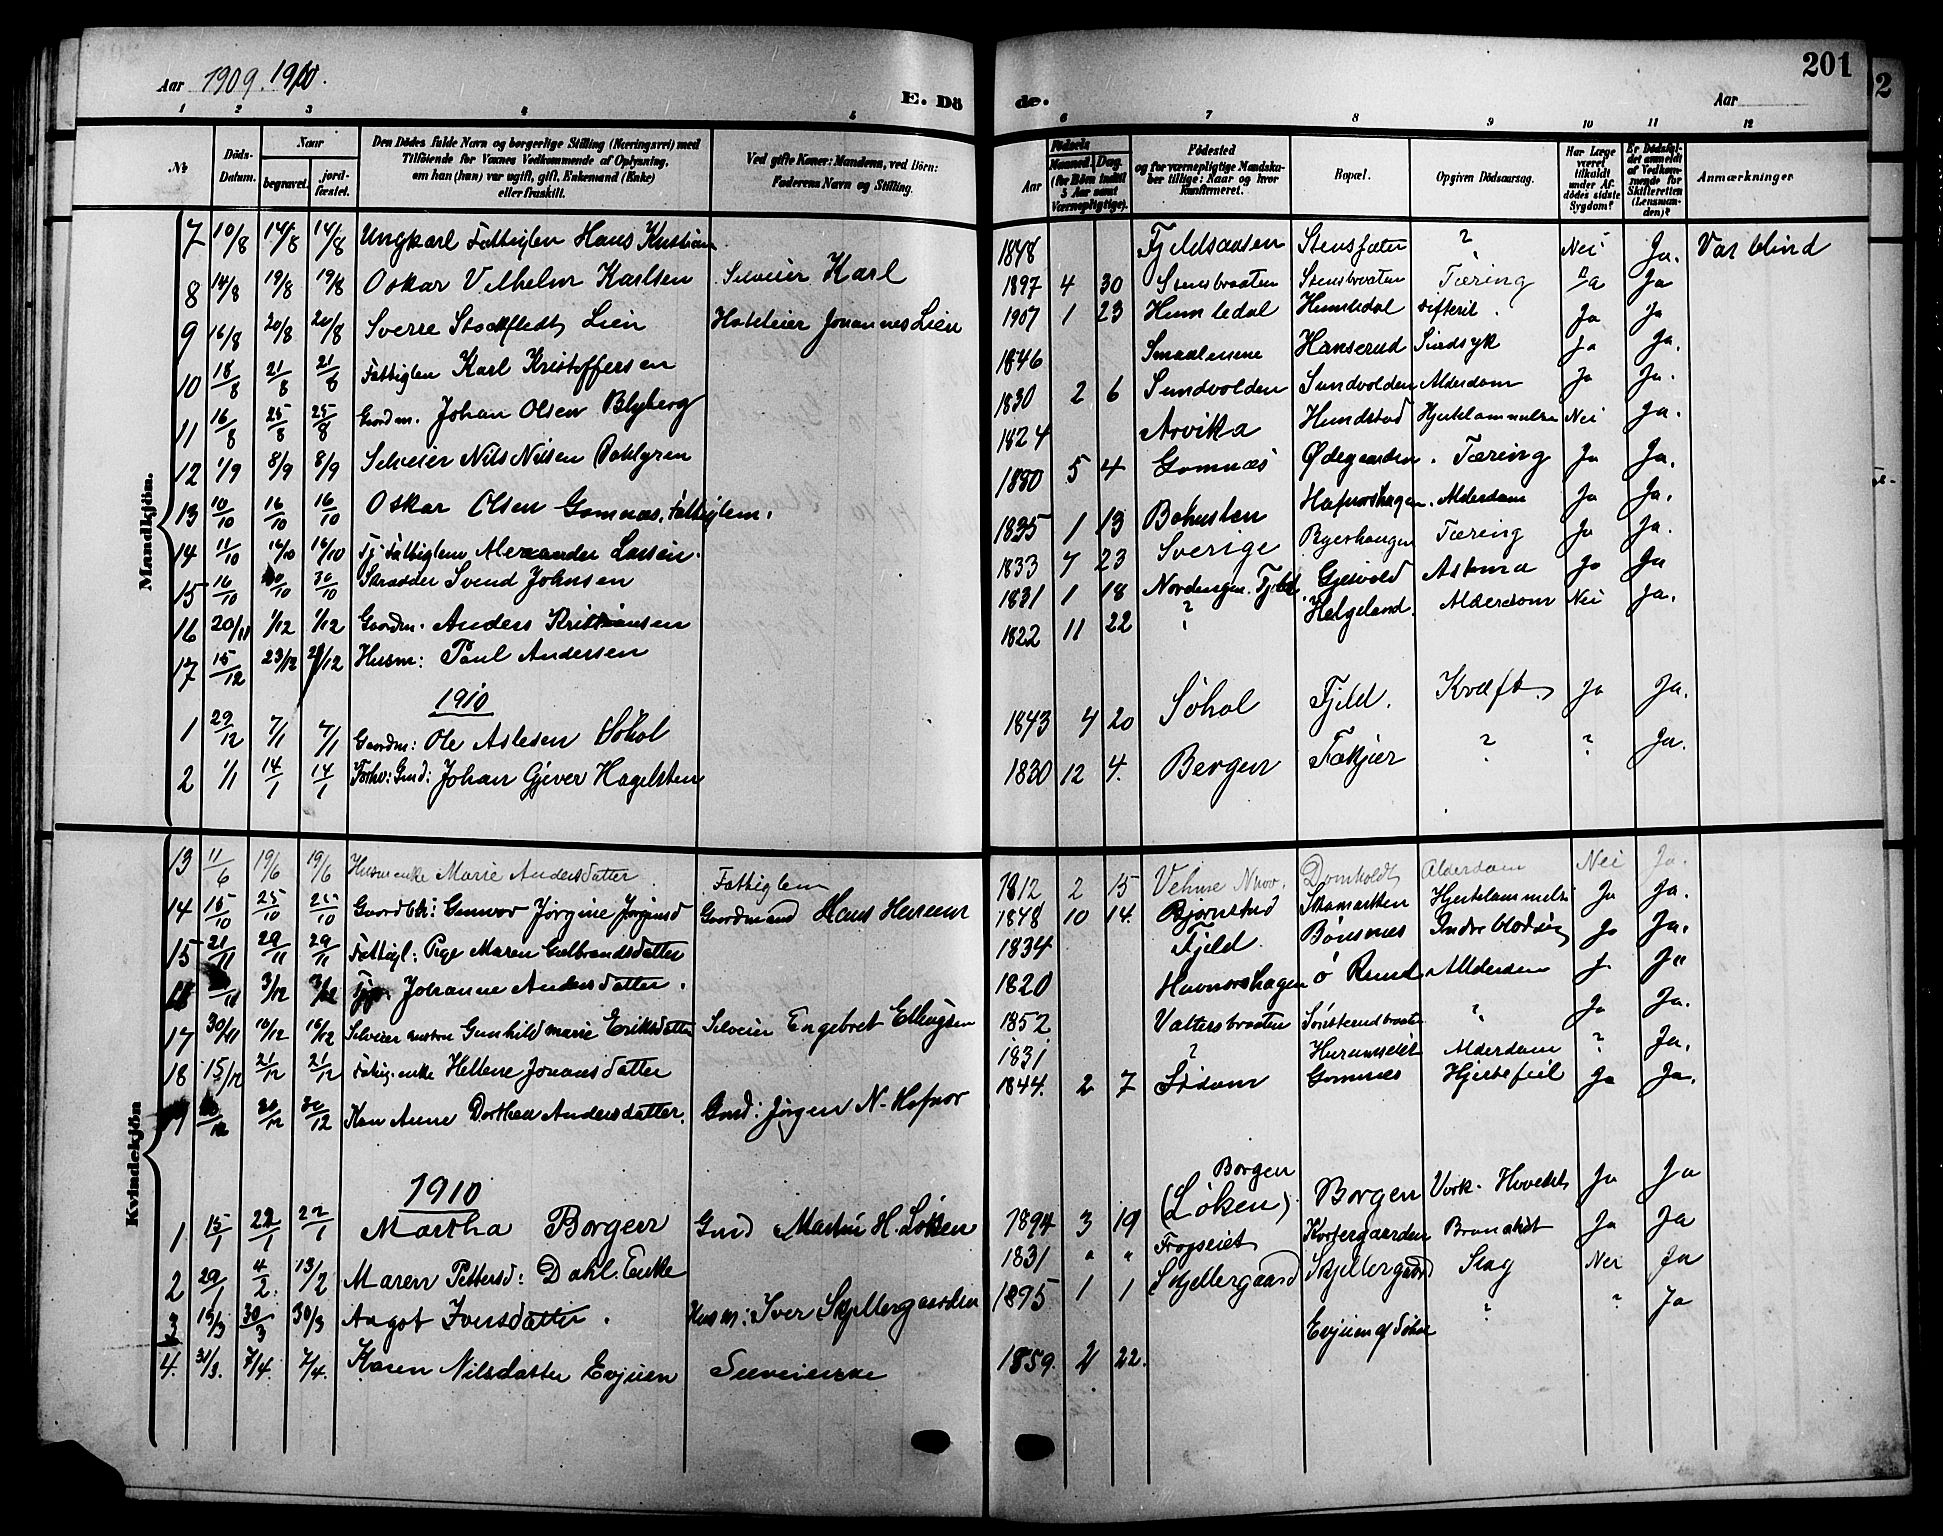 Aar 1909. 1910.
E. Dö
de.
Aar
201
1 2 3 4 5 6 7 8 9 10 11 12
No
Döds-Datum.
Naar
begravet.
jord-fæstet.
Den Dödes fulde Navn og borgerlige Stilling (Næringsvei) med
Tilföiende for Voxnes Vedkommende af Oplysning,
om han (hun) var ugift, gift, Enkemand (Enke)
eller fraskilt.
Ved gifte Koner: Mandens, ved Börn:
Faderens Navn og Stilling.
Födsels
Aar
Maaned. Dag
(for Börn indtil
5 Aar samt
Værnepligtige).
Födested
og for værnepligtige Mandska-
ber tillige: Naar og hvor
konfirmeret.
Bopæl.
Opgiven Dödsaarsag.
Har Læge
været
tilkaldt
under Af-
dödes sidste
Sygdom?
Er Dödsfal-
det anmeldt
af Vedkom-
mende for
Skifteretten
(Lensman-
den)?
Anmærkninger
Mandkjön.
7 10/8 14/8 14/8 Ungkarl Fattiglem Hans Kristian 1848 Fjeldsausen Stensfæter ? Nei Ja. Var blind
8 14/8 19/8 19/8 Oskar Vilhelm Karlsen Selveier Karl 1897 4 30 Stensbraaten Stensbraaten Tæring Ja Ja
9 16/8 20/8 20/8 Sverre Stockfledt Lien Hoteleier Johannes Lien 1907 1 23 Humledal Humledal Difterit. Ja Ja
10 18/8 21/8 21/8 Fattiglem Karl Kristoffersen 1846 Smaalenene Hanserud Sindsyk Ja Ja.
11 16/8 25/8 25/8 Gaardm. Johan Olsen Blyberg 1830 2 6 Sundvolden Sundvolden Alderdom Ja Ja.
12 1/9 8/9 8/9 Selveier Nils Nilsen Dahlgren 1824 Arvika Hundstad Hjertelammelse Nei Ja.
13 10/10 16/10 16/10 Oskar Olsen Gomnæs, Fattiglem. 1880 5 4 Gomnæs Ødegaarden. Tæring Ja Ja.
14 11/10 16/10 16/10 Fattiglem Alexander Larsen. 1835 1 13 Bohuslen Hafnorshagen. Alderdom Ja Ja.
15 16/10 30/10 30/10 Skrædder Svend Johnsen 1833 7 23 Sverige Byerhaugen Tæring Ja Ja.
16 20/11 1/12 1/12 Gaardm. Anders Kristiansen 1831 1 18 Nordengen. Fjeld. Gjesvold Astma Ja Ja
17 15/12 23/12 23/12 Husm: Paul Andersen 1822 11 22 ? Helgeland. Alderdom Nei Ja.
1910
1 29/12 7/1 7/1 Gaardm: Ole Aslesen Søhol 1843 4 20 Søhol Fjeld. Kræft. Ja Ja.
2 1/1 14/1 14/1 Forhv: Gmd: Johan Gjever Hagelsten 1830 12 4. Bergen Fækjær ? ? Ja.
Kvindekjön
13 11/6 19/6 19/6 Husmenke Marie Andersdatter Fattiglem 1812 2 15 Domholdt Alderdom Nei Ja.
14 15/10 25/10 25/10 Gunvor Jørgine Jørginsd Gaardmand Hans 1848 10 14. Bjørnstad Skamarken Hjertelammelse Ja Ja.
15 21/11 29/11 29/11 Fattigl: Pige Maren Gulbrandsdatter 1834 Fjeld. Bønsnes Indre Ja Ja.
3/12 3/12 Johanne Andersdatter. 1820 Havnorshagen Alderdom
17 30/11 10/12 10/12 Gunhild marie Eriksdatter Selveier Engebret Ellingsen 1852 Vattersbraaten ? Ja Ja.
18 15/12 21/12 21/12 Fattig. enke Hellene Jonasdatter 1831 ? Alderdom ? Ja.
19 30/12 30/12 Kone Anne Dorthea Andersdatter. Gmd: Jørgen N. Hafnor 1844. 2 7 Gomnes Hjertefeil Ja Ja.
1910
1 15/1 22/1 22/1 Martha Borgen Gmd Martin H. Løken 1894 3 19 Borgen (Løken). Borgen Ja Ja
2 29/1 4/2. 13/2 Maren Pettersd: Dahl. Enke 1831 " " Frogseiet Korsergaarden Ja Ja
3 19/3 30/3 30/3 Angot Iversdatter. Husm: Iver Skjellergaarden 1895 1 1 Skjellergaard Skjellergaard Slag Nei Ja
4. 31/3. 7/4. 7/4. Karen Nilsdatter Evjuen Selveierske 1859. 2 22. Evjuen af Søhol ? ? Ja